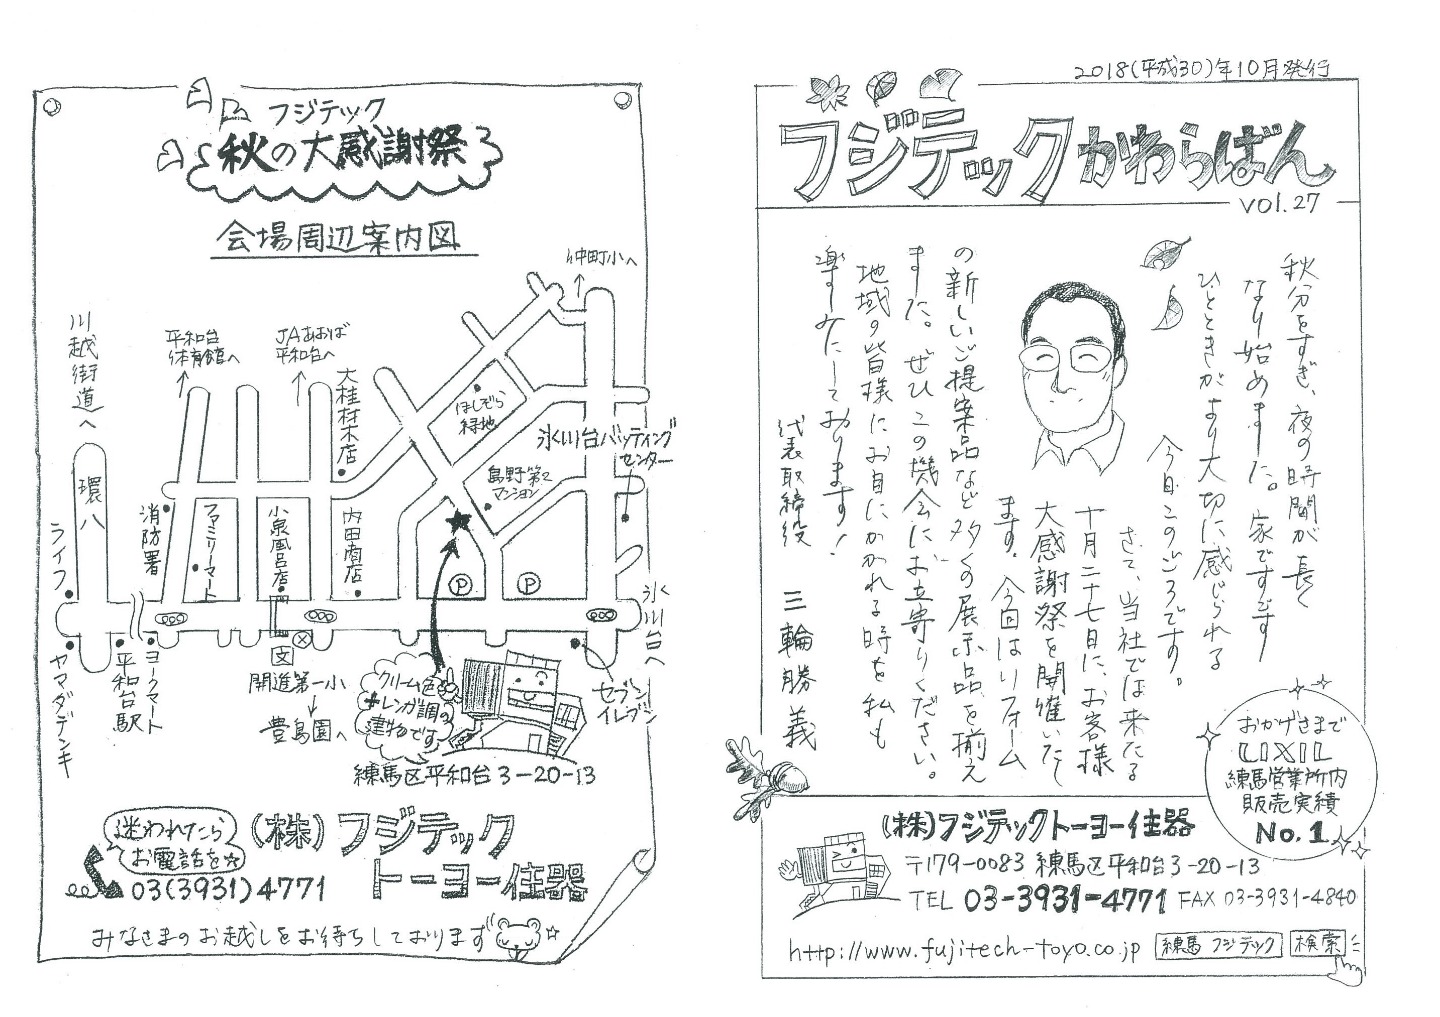 フジテック
秋の大感謝祭
会場周辺案内図
仲町小へ
川越街道へ
平和台
体育館へ
JAあおば
平和台へ
大桂材木店
ほしぞら
緑地
氷川台バッティング
センター
島野第2
マンション
環八
ライフ
消防署
ファミリーマート
小泉風呂店
内田商店
P
P
氷川台へ
文
ヤマダデンキ
平和台駅
ヨークマート
開進第一小
豊島園へ
クリーム色
+レンガ調の
建物です
セブン
イレブン
練馬区平和台3-20-13
迷われたら
お電話を☆
03(3931)4771
(株)フジテック
トーヨー住器
みなさまのお越しをお待ちしております
2018(平成30)年10月発行
フジテックかわらばん
vol.27
秋分をすぎ、夜の時間が長く
なり始めました。家ですごす
ひとときがより大切に感じられる
今日このごろです。
さて、当社では来たる
十月二十七日に、お客様
大感謝祭を開催いたし
ます。今回はリフォーム
の新しいご提案品など多くの展示品を揃え
ました。ぜひこの機会にお立寄りください。
地域の皆様にお目にかかれる時を私も
楽しみにしております!
代表取締役 三輪勝義
おかげさまで
LIXIL
練馬営業所内
販売実績
No.1
(株)フジテックトーヨー住器
〒179-0083 練馬区平和台3-20-13
TEL 03-3931-4771 FAX 03-3931-4840
http://www.fujitech-toyo.co.jp 練馬 フジテック 検索